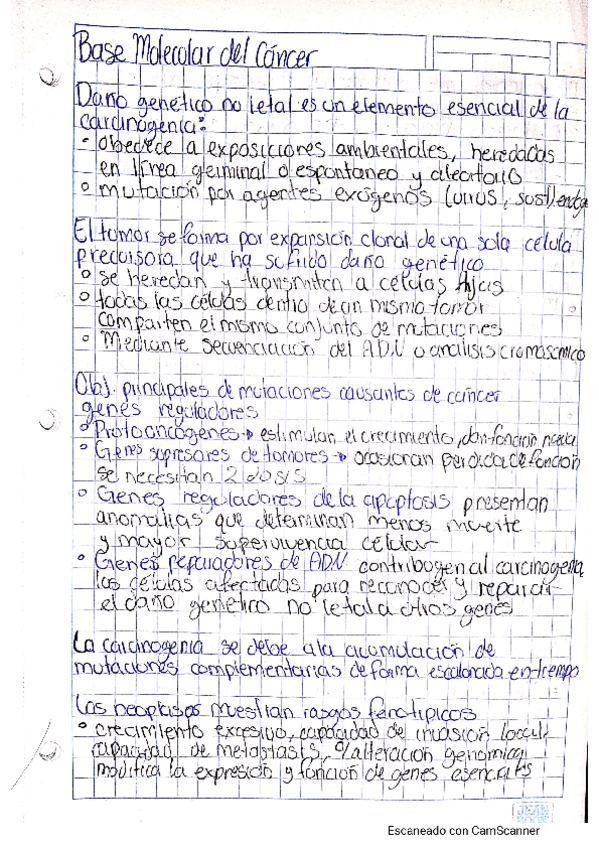 Base Molecular del Cáncer
Daño genético no letal es un elemento esencial de la
carcinogenia:
° obedece a exposiciones ambientales, heredadas
en línea germinal o espontaneo y aleatorio
° mutación por agentes exógenos (virus, sust) endóge
El tumor se forma por expansión clonal de una sola célula
precursora que ha sufrido daño genético
° se heredan y transmiten a células hijas
° todas las células dentro de un mismo tumor
comparten el mismo conjunto de mutaciones
° Mediante secuenciación del ADN o análisis cromosómico
Obj. principales de mutaciones causantes de cáncer
genes reguladores
° Protooncógenes → estimulan el crecimiento, dan función nueva
° Genes supresores de tumores → ocasionan perdida de función
se necesitan 2 dosis
° Genes reguladores de la apoptosis presentan
anomalías que determinan menos muerte
y mayor supervivencia celular
° Genes reparadores de ADN contribuyen al carcinogenia
las células afectadas para reconocer y reparar
el daño genético no letal a otros genes
La carcinogenia se debe a la acumulación de
mutaciones complementarias de forma escalonada en tiempo
Las neoplasias muestran rasgos fenotípicos
° crecimiento excesivo, capacidad de invasión local,
capacidad de metástasis, alteración genómica
modifica la expresión y función de genes esenciales
JEAN BOOK
Escaneado con CamScanner